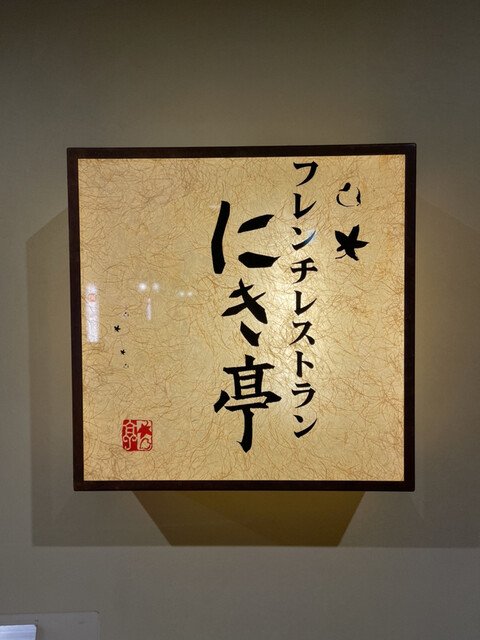 フレンチレストラン
にき亭